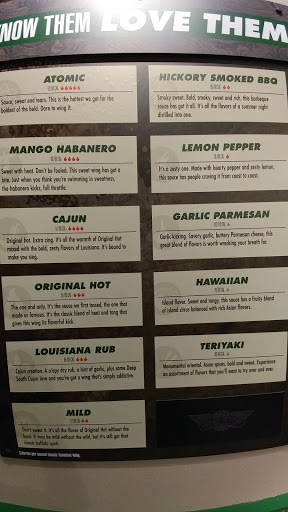 KNOW THEM LOVE THEM
ATOMIC
Sauce, sweat and tears. This is the hottest we got for the
boldest of the bold. Dare to wing it.
MANGO HABANERO
Sweet with heat. Don't be fooled. This sweet wing has got a
bite. Just when you think you're swimming in sweetness,
the habanero kicks, full throttle.
CAJUN
Original hot. Extra zing. It's all the warmth of Original Hot
mixed with the bold, zesty flavors of Louisiana. It's bound to
make you sing.
ORIGINAL HOT
The one and only. It's the sauce we first tossed, the one that
made us famous. It's the classic blend of heat and tang that
gives this wing its flavorful kick.
LOUISIANA RUB
Cajun creation. A crispy dry rub, a hint of garlic, plus some Deep
South Cajun love and you've got a wing that's simply addictive.
MILD
Can't sweat it. It's all the flavor of Original Hot without the
heat. It may be mild without the wild, but it's still got that
classic buffalo spirit.
HICKORY SMOKED BBQ
Smoky sweet. Bold, smoky, sweet and rich, this barbeque
sauce has got it all. It's all the flavors of a summer night
distilled into one.
LEMON PEPPER
It's a zesty one. Made with hearty pepper and zesty lemon,
this sauce has people craving it from coast to coast.
GARLIC PARMESAN
Garlic-kicking. Savory garlic, buttery Parmesan cheese, this
great blend of flavors is worth wrecking your breath for.
HAWAIIAN
Island flavor. Sweet and tangy, this sauce has a fruity blend
of island citrus balanced with rich Asian flavors.
TERIYAKI
Monumental oriental. Asian spices, bold and sweet. Experience
an assortment of flavors that you'll want to try over and over.